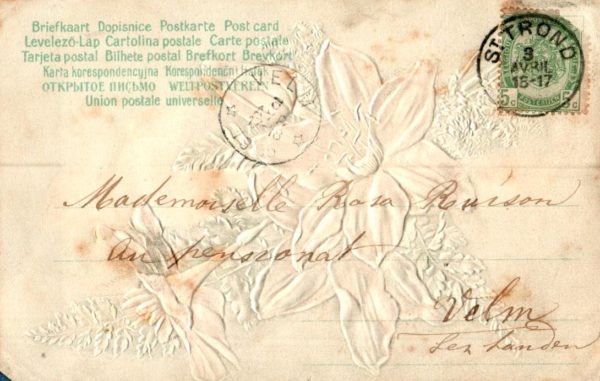 Briefkaart Dopisnice Postkarte Post card
Levelező-Lap Cartolina postale Carte postale
Tarjeta postal Bilhete postal Brefkort Brevkort
Karta korespondencyjna Korespondenční lístek
ОТКРЫТОЕ ПИСЬМО WELTPOSTVEREIN
Union postale universelle
ST TROND
3
AVRIL
15-17
5c 5c
VELM
Mademoiselle Rosa Ruison
au pensionat
Velm
Lez Landen